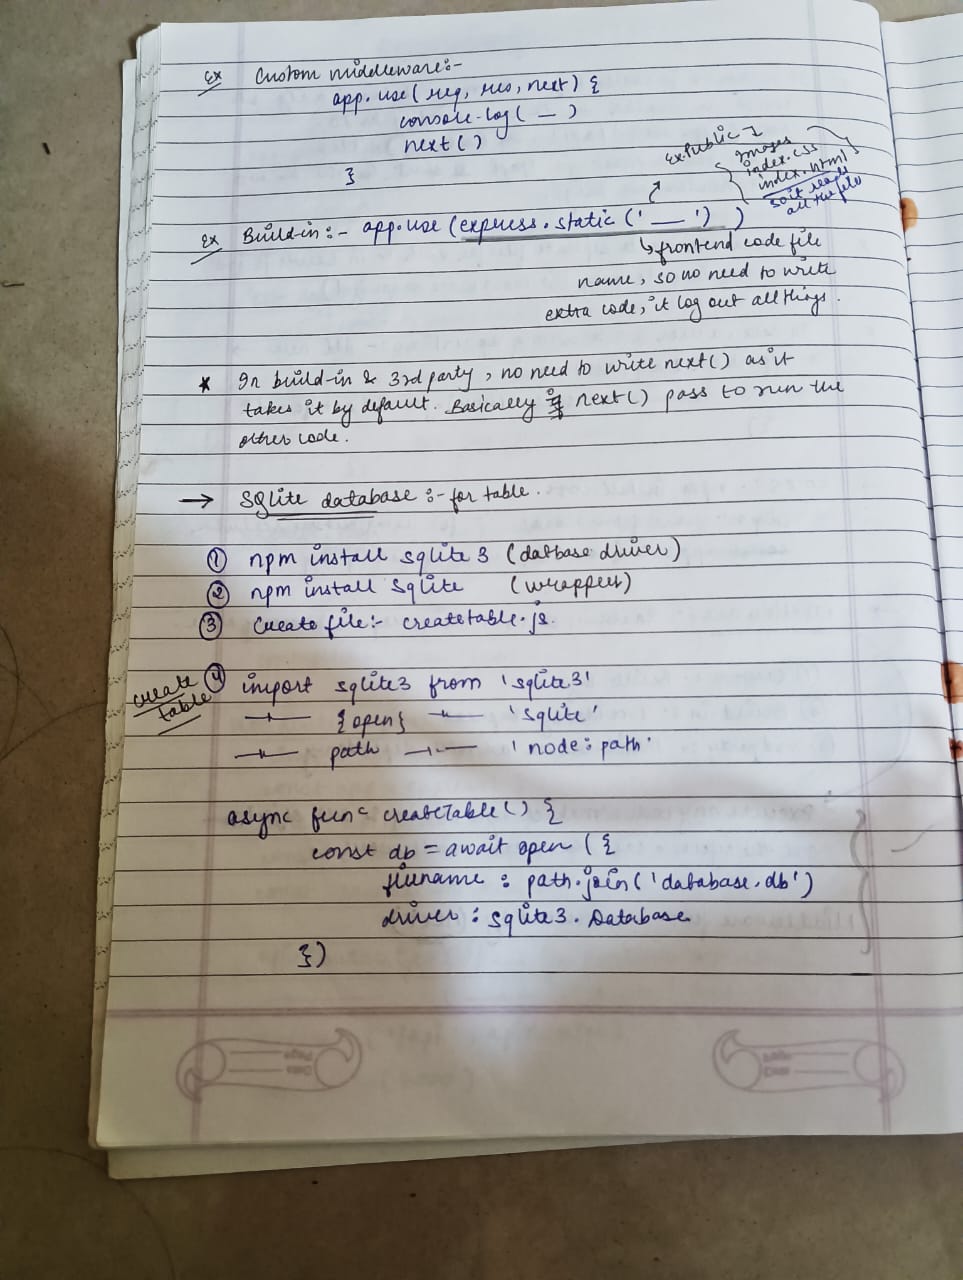 Ex Custom middleware:-
app.use( req, res, next) {
console.log( — )
next()
}
Ex. Public
images
index.css
index.html
so it reads
all the file
Ex Build-in :- app.use (express.static ('___') )
↳ frontend code file
name, so no need to write
extra code, it log out all things.
* In build-in & 3rd party, no need to write next() as it
takes it by default. Basically next() pass to run the
other code.
→ SQlite database :- for table.
① npm install sqlite3 (datbase driver)
② npm install sqlite (wrapper)
③ Create file:- createtable.js.
create
table
④ import sqlite3 from 'sqlite3'
—〃— {open} —〃— 'sqlite'
—〃— path —〃— 'node:path'
async func createTable() {
const db = await open ( {
filename : path.join('database.db')
driver : sqlite3.Database
})